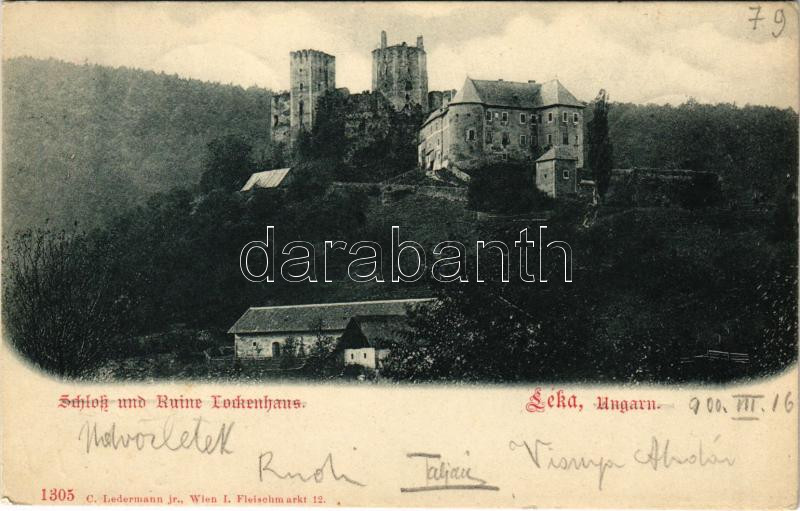 79
darabanth
Schloß und Ruine Lockenhaus. Léka, Ungarn. 900. III. 16
Üdvözletek
Rudi Visnya Aladár
1305 C. Ledermann jr., Wien I. Fleischmarkt 12.